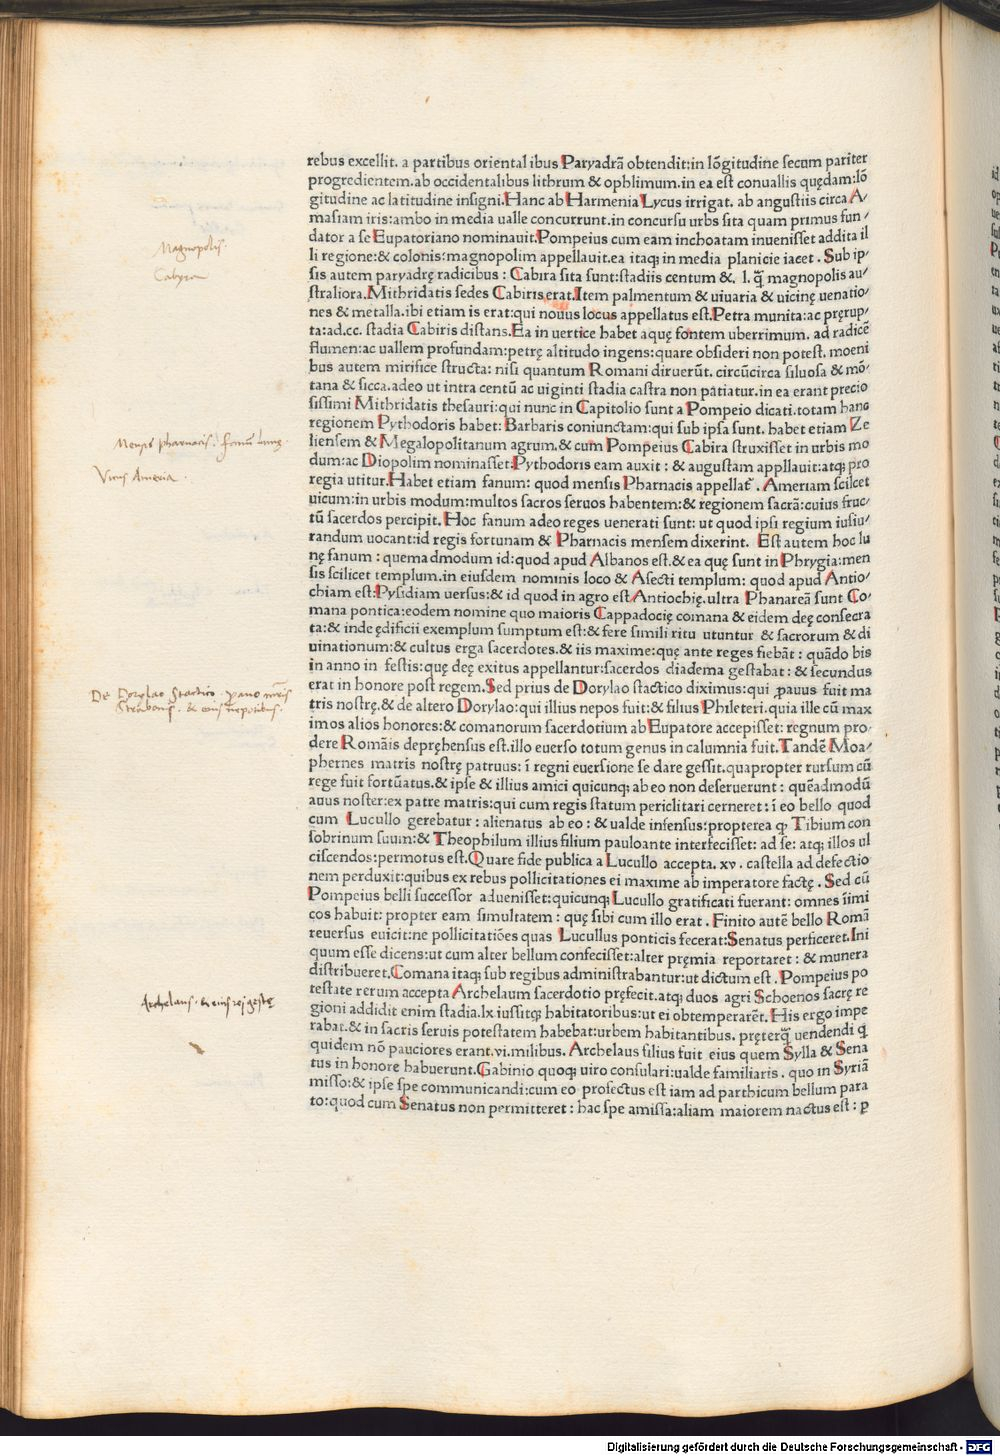 rebus excellit. a partibus oriental ibus Paryadrā obtendit:in lōgitudine secum pariter
progredientem.ab occidentalibus lithrum & ophlimum.in ea est conuallis quędam:lō
gitudine ac latitudine insigni.Hanc ab Harmenia Lycus irrigat. ab angustiis circa A⸗
masiam iris:ambo in media ualle concurrunt.in concursu urbs sita quam primus fun⸗
dator a se Eupatoriano nominauit.Pompeius cum eam inchoatam inuenisset addita il
li regione:& colonis:magnopolim appellauit.ea itaq; in media planicie iacet. Sub ip⸗
Magnopolis.
Cabyra
sis autem paryadrę radicibus: Cabira sita sunt:stadiis centum &. l. q̃ magnopolis au⸗
straliora.Mithridatis sedes Cabiris erat.Item palmentum & uiuaria & uicinę uenatio⸗
nes & metalla.ibi etiam is erat:qui nouus locus appellatus est.Petra munita:ac pręrup⸗
ta:ad.cc. stadia Cabiris distans.Ea in uertice habet aquę fontem uberrimum. ad radicē
flumen:ac uallem profundam:petrę altitudo ingens:quare obsideri non potest. moeni
bus autem mirifice structa: nisi quantum Romani diruerūt. circūcirca siluosa & mō⸗
tana & sicca.adeo ut intra centū ac uiginti stadia castra non patiatur.in ea erant precio
sissimi Mithridatis thesauri:qui nunc in Capitolio sunt a Pompeio dicati.totam hanc
regionem Pythodoris habet: Barbaris coniunctam:qui sub ipsa sunt. habet etiam Ze
Mensis pharnacis. fanum lunę.
liensem & Megalopolitanum agrum.& cum Pompeius Cabira struxisset in urbis mo
dum:ac Diopolim nominasset:Pythodoris eam auxit: & augustam appllauit:atq; pro
Vicus Ameria.
regia utitur.Habet etiam fanum: quod mensis Pharnacis appellat᷑. Ameriam scilcet
uicum:in urbis modum:multos sacros seruos habentem:& regionem sacrā:cuius fruc⸗
tū sacerdos percipit. Hoc fanum adeo reges uenerati sunt: ut quod ipsi regium iusiu⸗
randum uocant:id regis fortunam & Pharnacis mensem dixerint. Est autem hoc lu
nę fanum: quema dmodum id:quod apud Albanos est.& ea quę sunt in Phrygia:men
sis scilicet templum.in eiusdem nominis loco & Asecti templum: quod apud Antio⸗
chiam est:Pysidiam uersus:& id quod in agro est Antiochię.ultra Phanareā sunt Co⸗
mana pontica:eodem nomine quo maioris Cappadocię comana & eidem deę consecra
ta:& inde ędificii exemplum sumptum est:& fere simili ritu utuntur & sacrorum & di
uinationum:& cultus erga sacerdotes.& iis maxime:quę ante reges fiebāt: quādo bis
in anno in festis:quę deę exitus appellantur:sacerdos diadema gestabat: & secundus
De Dorylao Stactico. pauo matris
Strabonis. & eius nepotibus.
erat in honore post regem.Sed prius de Dorylao stactico diximus:qui ꝓauus fuit ma
tris nostrę.& de altero Dorylao:qui illius nepos fuit:& filius Phileteri.quia ille cū max
imos alios honores:& comanorum sacerdotium ab Eupatore accepisset: regnum pro⸗
dere Romāis depręhensus est.illo euerso totum genus in calumnia fuit. Tandē Moa⸗
phernes matris nostrę patruus: ī regni euersione se dare gessit.quapropter rursum cū
rege fuit fortūatus.& ipse & illius amici quicunq; ab eo non deseruerunt: quēadmodū
auus noster:ex patre matris:qui cum regis statum periclitari cerneret: ī eo bello quod
cum Lucullo gerebatur: alienatus ab eo: & ualde infensus:propterea ꝙ Tibium con
sobrinum suum:& Theophilum illius filium pauloante interfecisset: ad se: atq; illos ul
ciscendos:permotus est.Quare fide publica a Lucullo accepta. xv. castella ad defectio
nem perduxit:quibus ex rebus pollicitationes ei maxime ab imperatore factę. Sed cū
Pompeius belli successor aduenisset:quicunq; Lucullo gratificati fuerant: omnes iīmi
cos habuit: propter eam simultatem: quę sibi cum illo erat. Finito autē bello Romā
reuersus euicit:ne pollicitatiōes quas Lucullus ponticis fecerat:Senatus perficeret.Ini
quum esse dicens:ut cum alter bellum confecisset:alter pręmia reportaret: & munera
distribueret.Comana itaq; sub regibus administrabantur:ut dictum est. Pompeius po
testate rerum accepta Archelaum sacerdotio pręfecit.atq; duos agri Schoenos sacrę re
Archelaus. & eius res gestę
gioni addidit enim stadia.lx iussitq; habitatoribus:ut ei obtemperarēt. His ergo impe
rabat.& in sacris seruis potestatem habebat:urbem habitantibus. pręterq̃ uendendi q̃
quidem nō pauciores erant.vi.milibus. Archelaus filius fuit eius quem Sylla & Sena
tus in honore habuerunt.Gabinio quoq; uiro consulari:ualde familiaris. quo in Syriā
misso:& ipse spe communicandi:cum eo profectus est iam ad parthicum bellum para
to:quod cum Senatus non permitteret: hac spe amissa:aliam maiorem nactus est: ꝑ
Digitalisierung gefördert durch die Deutsche Forschungsgemeinschaft - DFG